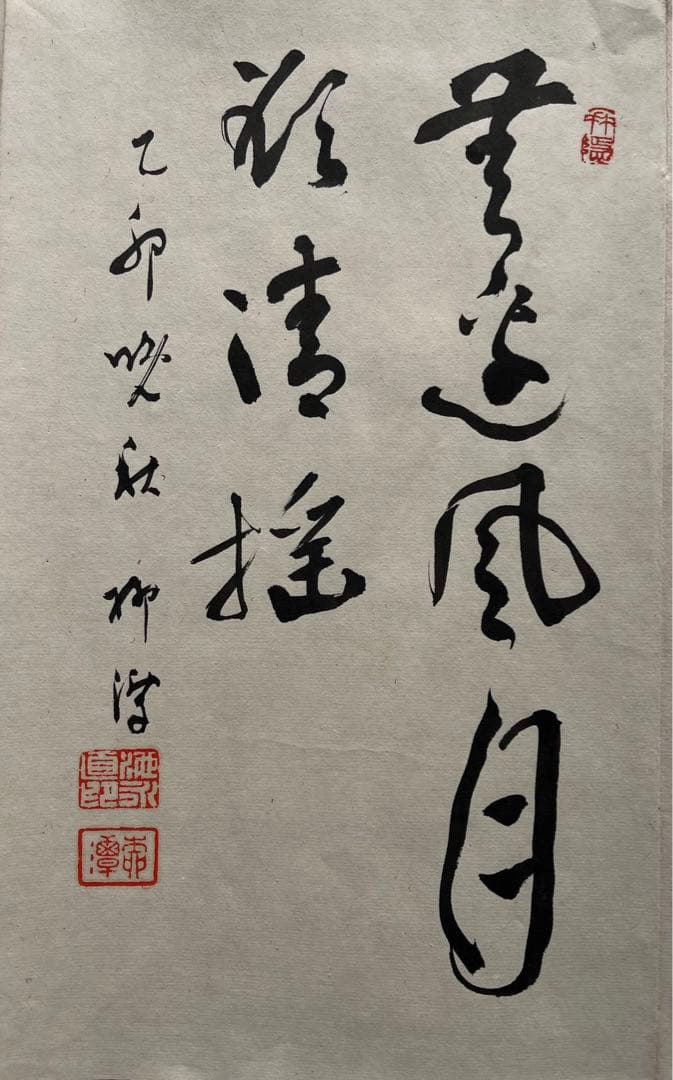 無邊風月
清搖
乙卯晚秋 柳潭
柳潭